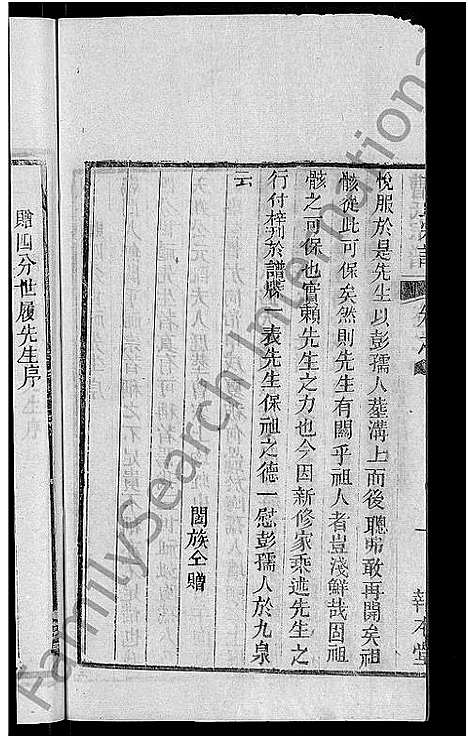 悅服於是先生以彭孺人墓溝上而後聰弗敢再開矣祖
骸從此可保矣然則先生有關乎祖人者豈淺鮮哉因祖
骸之可保也實賴先生之力也今因新修家乘述先生之
行付梓刊於譜牒一表先生保祖之德一慰彭孺人於九泉
云
闔族仝贈
贈四分世履先生序
報本堂
FamilySearch International